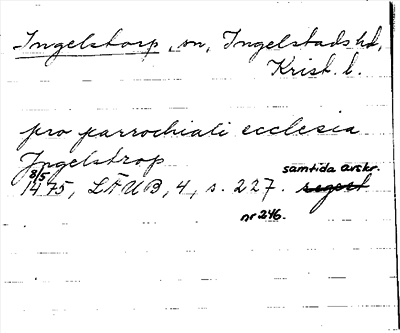 Ingelstorp, sn, Ingelstads hd,
Krist. l.
pro parrochiali ecclesia
Jngelstrop
8/5 samtida avskr.
1475, LÄUB, 4, s. 227. regest
nr 246.